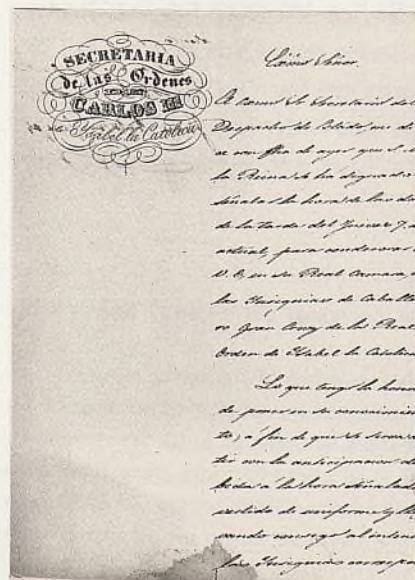 SECRETARIA
de las Ordenes
CARLOS III
é Ysabel la Católica
Excmo Señor.
El Secretario del
Despacho de Estado me di
ce con fha de ayer que
la Reina se ha dignado
señalar la hora de las do
de la tarde del Jueves 7.
actual, para condecorar
V. E. en su Real Camara,
las Ynsignias de Caballe
ro Gran Cruz de la Real
Orden de Ysabel la Catolica
Lo que tengo la honra
de poner en su conocimien
to, á fin de que se sirva
tir con la anticipacion de
bida á la hora señalada
vestido de uniforme, y lle
vando consigo al
las Ynsignias